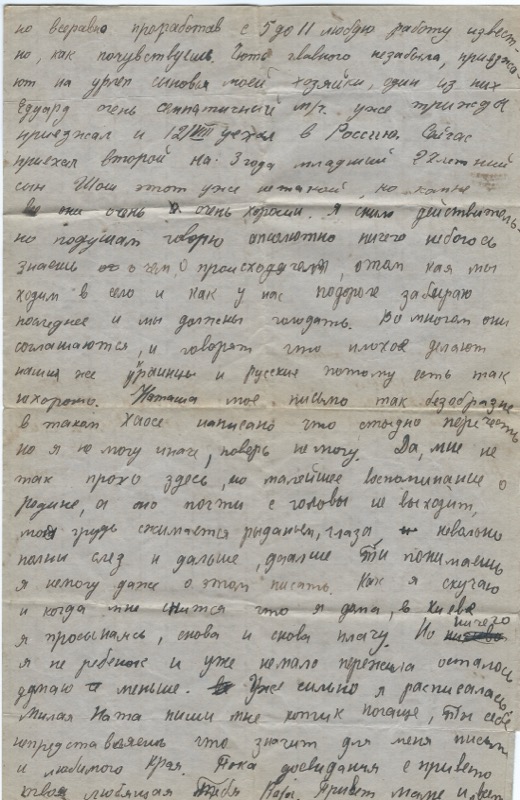 но всеравно проработав с 5 до 11 любую работу извест-
но, как почувствуешь. Чуть главного незабыла, приезжа-
ют на урлеп сыновья моей хозяйки, один из них
Едуард очень симпатичный м/ч. уже трижды
приезжал и 12/VIII уехал в Россию. Сейчас
приехал второй на 3 года младший 22 летний
сын Иош этот уже не такой, но комне
они очень очень хороши. Я сними действитель-
но подушам говорю апсолютно ничего небоюсь
знаешь о чем, О происходящем, о том как мы
ходим в село и как у нас подороге забирают
последнее и мы должны голодать. Во многом они
соглашаются, и говорят что плохое делают
наши же украинцы и русские потому есть так
нехорошо. Наташа мое письмо так безобразно
в таком хаосе написано что стыдно перечесть
но я не могу иначе, поверь не могу. Да, мне не
так плохо здесь, но малейшее воспоминание о
родине, а оно почти с головы не выходит,
моя грудь сжимается рыданьем, глаза невольно
полны слез и дальше, дальше Ты понимаешь
я немогу даже о этом писать. Как я скучаю
и когда мне снится что я дома, в Киеве
я просыпаясь, снова и снова плачу. Но ничего
я не ребенок и уже немало пережила осталось
думаю меньше. Уже сильно я расписалась
Милая Ната пиши мне котик почаще, Ты себе
непредставляешь что значит для меня письм
и любимого края. Пока досвидания с приветом
любящая Тебя Привет маме и